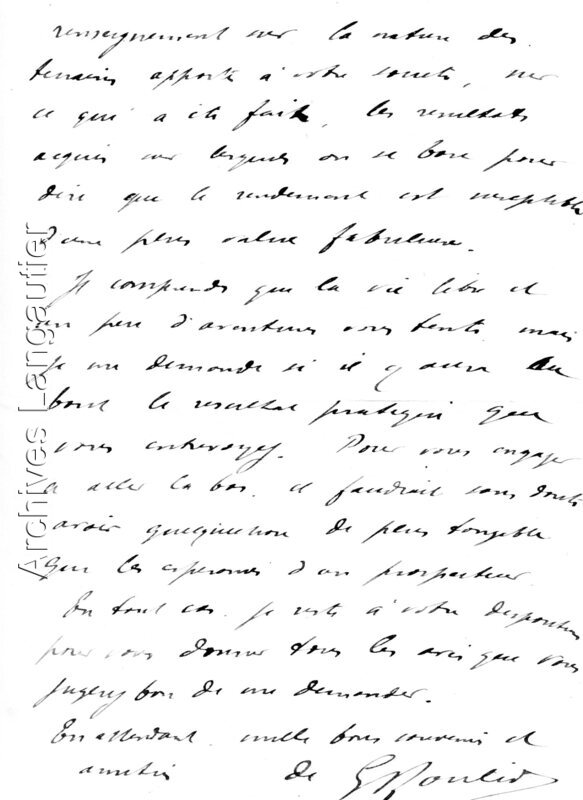 renseignement sur la nature des
terrains apporté à votre société, sur
ce qui a été fait, les résultats
acquis sur lesquels on se base pour
dire que le rendement est susceptible
d'une plus value fabuleuse.
Je comprends que la vie libre et
un peu d'aventures vous tente mais
je me demande si il y aura au
bout le résultat pratique que
vous entrevoyez. Pour vous engager
à aller la bas, il faudrait sans doute
avoir quelquechose de plus tangible
que les espérances d'un prospecteur.
En tout cas, je reste à votre disposition
pour vous donner tous les avis que vous
jugerez bon de me demander.
En attendant, mille bons souvenirs et
amitiés de
Archives Langautier